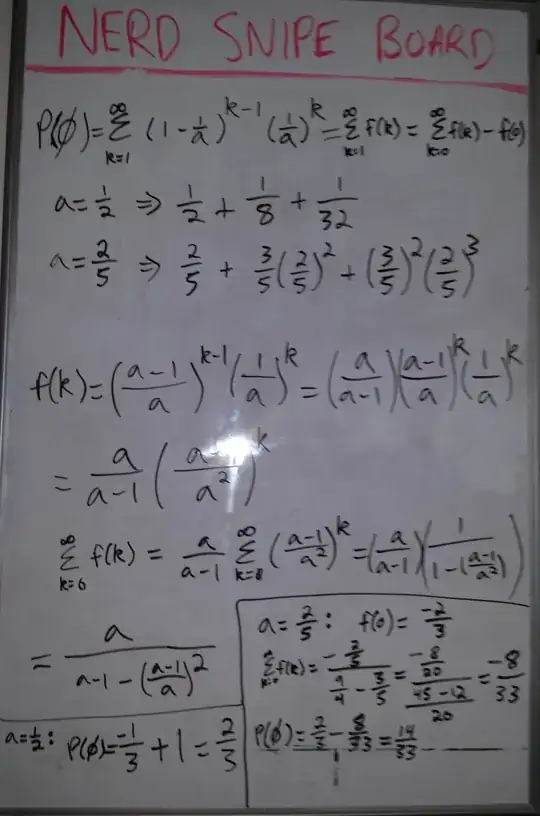 NERD SNIPE BOARD
P(∅)=∑_{k=1}^{∞} (1-1/a)^{k-1} (1/a)^k = ∑_{k=1}^{∞} f(k) = ∑_{k=0}^{∞} f(k) - f(0)
a=1/2 ⇒ 1/2 + 1/8 + 1/32
a=2/5 ⇒ 2/5 + 3/5(2/5)^2 + (3/5)^2(2/5)^3
f(k)=((a-1)/a)^{k-1}(1/a)^k = (a/(a-1))((a-1)/a)^k(1/a)^k
= a/(a-1) ((a-1)/a^2)^k
∑_{k=0}^{∞} f(k) = a/(a-1) ∑_{k=0}^{∞} ((a-1)/a^2)^k = (a/(a-1))(1/(1-((a-1)/a^2)))
= a/(a-1-((a-1)/a)^2)
a=1/2: P(∅)=-1/3+1=2/3
a=2/5: f(0)=-2/3
f(k)=
=-8/33
P(∅)=2/3-8/33=14/33